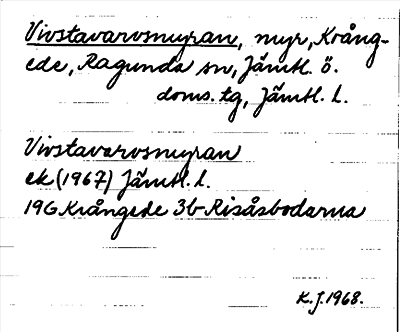 Vivstavarvsmyran, myr, Krång-
ede, Ragunda sn, Jämtl. ö.
doms. tg, Jämtl. l.
Vivstavarvsmyran
ek (1967) Jämtl. l.
19G Krångede 3b Risåsbodarna
K.J. 1968.